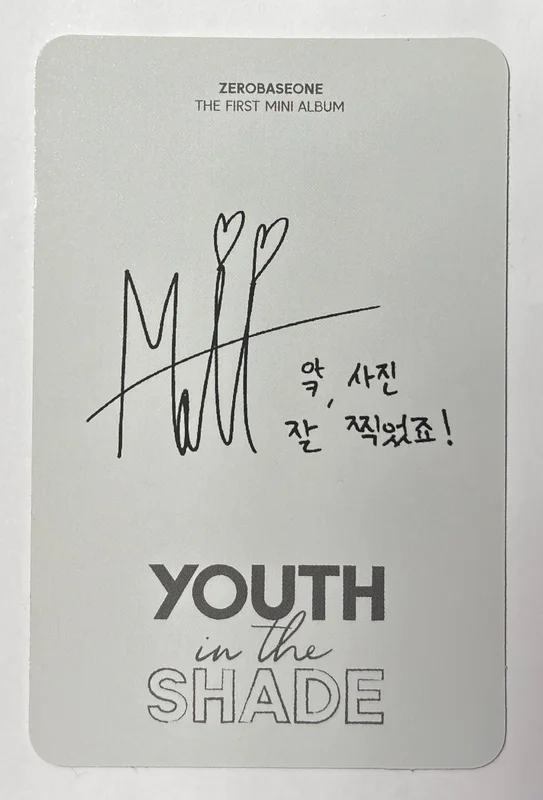 ZEROBASEONE
THE FIRST MINI ALBUM
Matt
앜, 사진
잘 찍었죠!
YOUTH
in the
SHADE